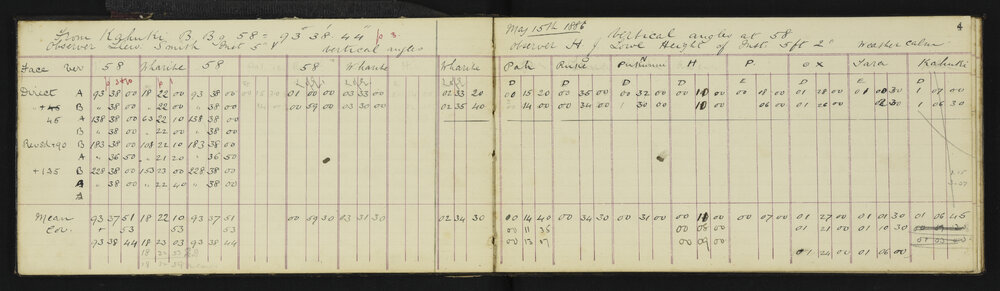 From Kahuki B Bo 58 = 93° 38' 44"
Observer Lieu. Smith Inst 5" vertical angles
Face Ver 58 Wharite 58 58 Wharite Wharite
Direct A 93 38 00 18 22 00 93 38 00 01 00 00 03 33 00 02 33 20
+45 B " 38 00 " 22 00 " 38 00 00 59 00 03 30 00 02 35 40
45 A 138 38 00 63 22 10 138 38 00
B " 38 00 " 22 00 " 38 00
Revsd+90 B 183 38 00 108 22 10 183 38 00
A " 36 50 " 21 20 " 36 50
+135 B 228 38 00 153 23 00 228 38 00
A " 38 00 " 22 40 " 38 00
A
Mean 93 37 51 18 22 10 93 37 51 00 59 30 03 31 30 02 34 30
Cov. + 53 53 53
93 38 44 18 23 03 93 38 44
May 15th 1886 Vertical angles at 58 4
Observer H J Lowe Height of Inst 5ft 2" Weather calm
Pah H P. OX Tara Kahuki
D D D D E D D D
00 15 20 00 35 00 00 32 00 00 10 00 00 08 00 01 28 00 01 00 30 1 07 00
00 14 00 00 34 00 1 30 00 00 10 00 00 06 00 01 26 00 02 30 1 06 30
3.07
00 14 40 00 34 30 00 31 00 00 10 00 00 07 00 01 27 00 01 01 30 01 06 45
00 11 35 00 08 00 01 21 00 01 10 30
00 13 07 00 09 00
01 24 00 01 06 00